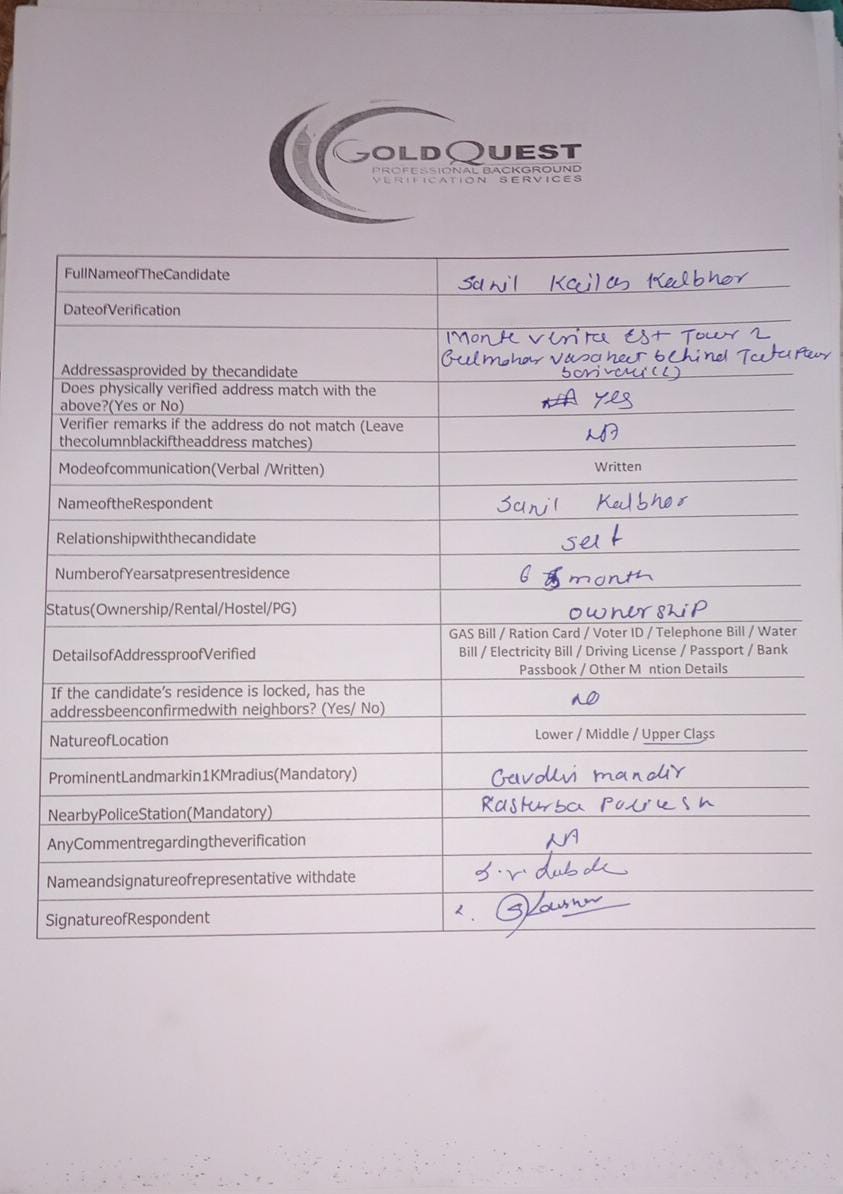 GOLDQUEST
PROFESSIONAL BACKGROUND
VERIFICATION SERVICES
FullNameofTheCandidate
Sanil Kailas Kalbhor
DateofVerification
Monte verita Est Tower 2
Gulmohar behind Tata
Addressasprovided by thecandidate
Does physically verified address match with the
above?(Yes or No)
yes
Verifier remarks if the address do not match (Leave
thecolumnblackiftheaddress matches)
NA
Modeofcommunication(Verbal /Written)
Written
NameoftheRespondent
Sanil Kalbhor
Relationshipwiththecandidate
self
NumberofYearsatpresentresidence
6 month
Status(Ownership/Rental/Hostel/PG)
ownership
DetailsofAddressproofVerified
GAS Bill / Ration Card / Voter ID / Telephone Bill / Water
Bill / Electricity Bill / Driving License / Passport / Bank
Passbook / Other M ntion Details
If the candidate's residence is locked, has the
addressbeenconfirmedwith neighbors? (Yes/ No)
NO
NatureofLocation
Lower / Middle / Upper Class
ProminentLandmarkin1KMradius(Mandatory)
Gavdevi mandir
NearbyPoliceStation(Mandatory)
Kasturba Police
AnyCommentregardingtheverification
NA
Nameandsignatureofrepresentative withdate
SignatureofRespondent